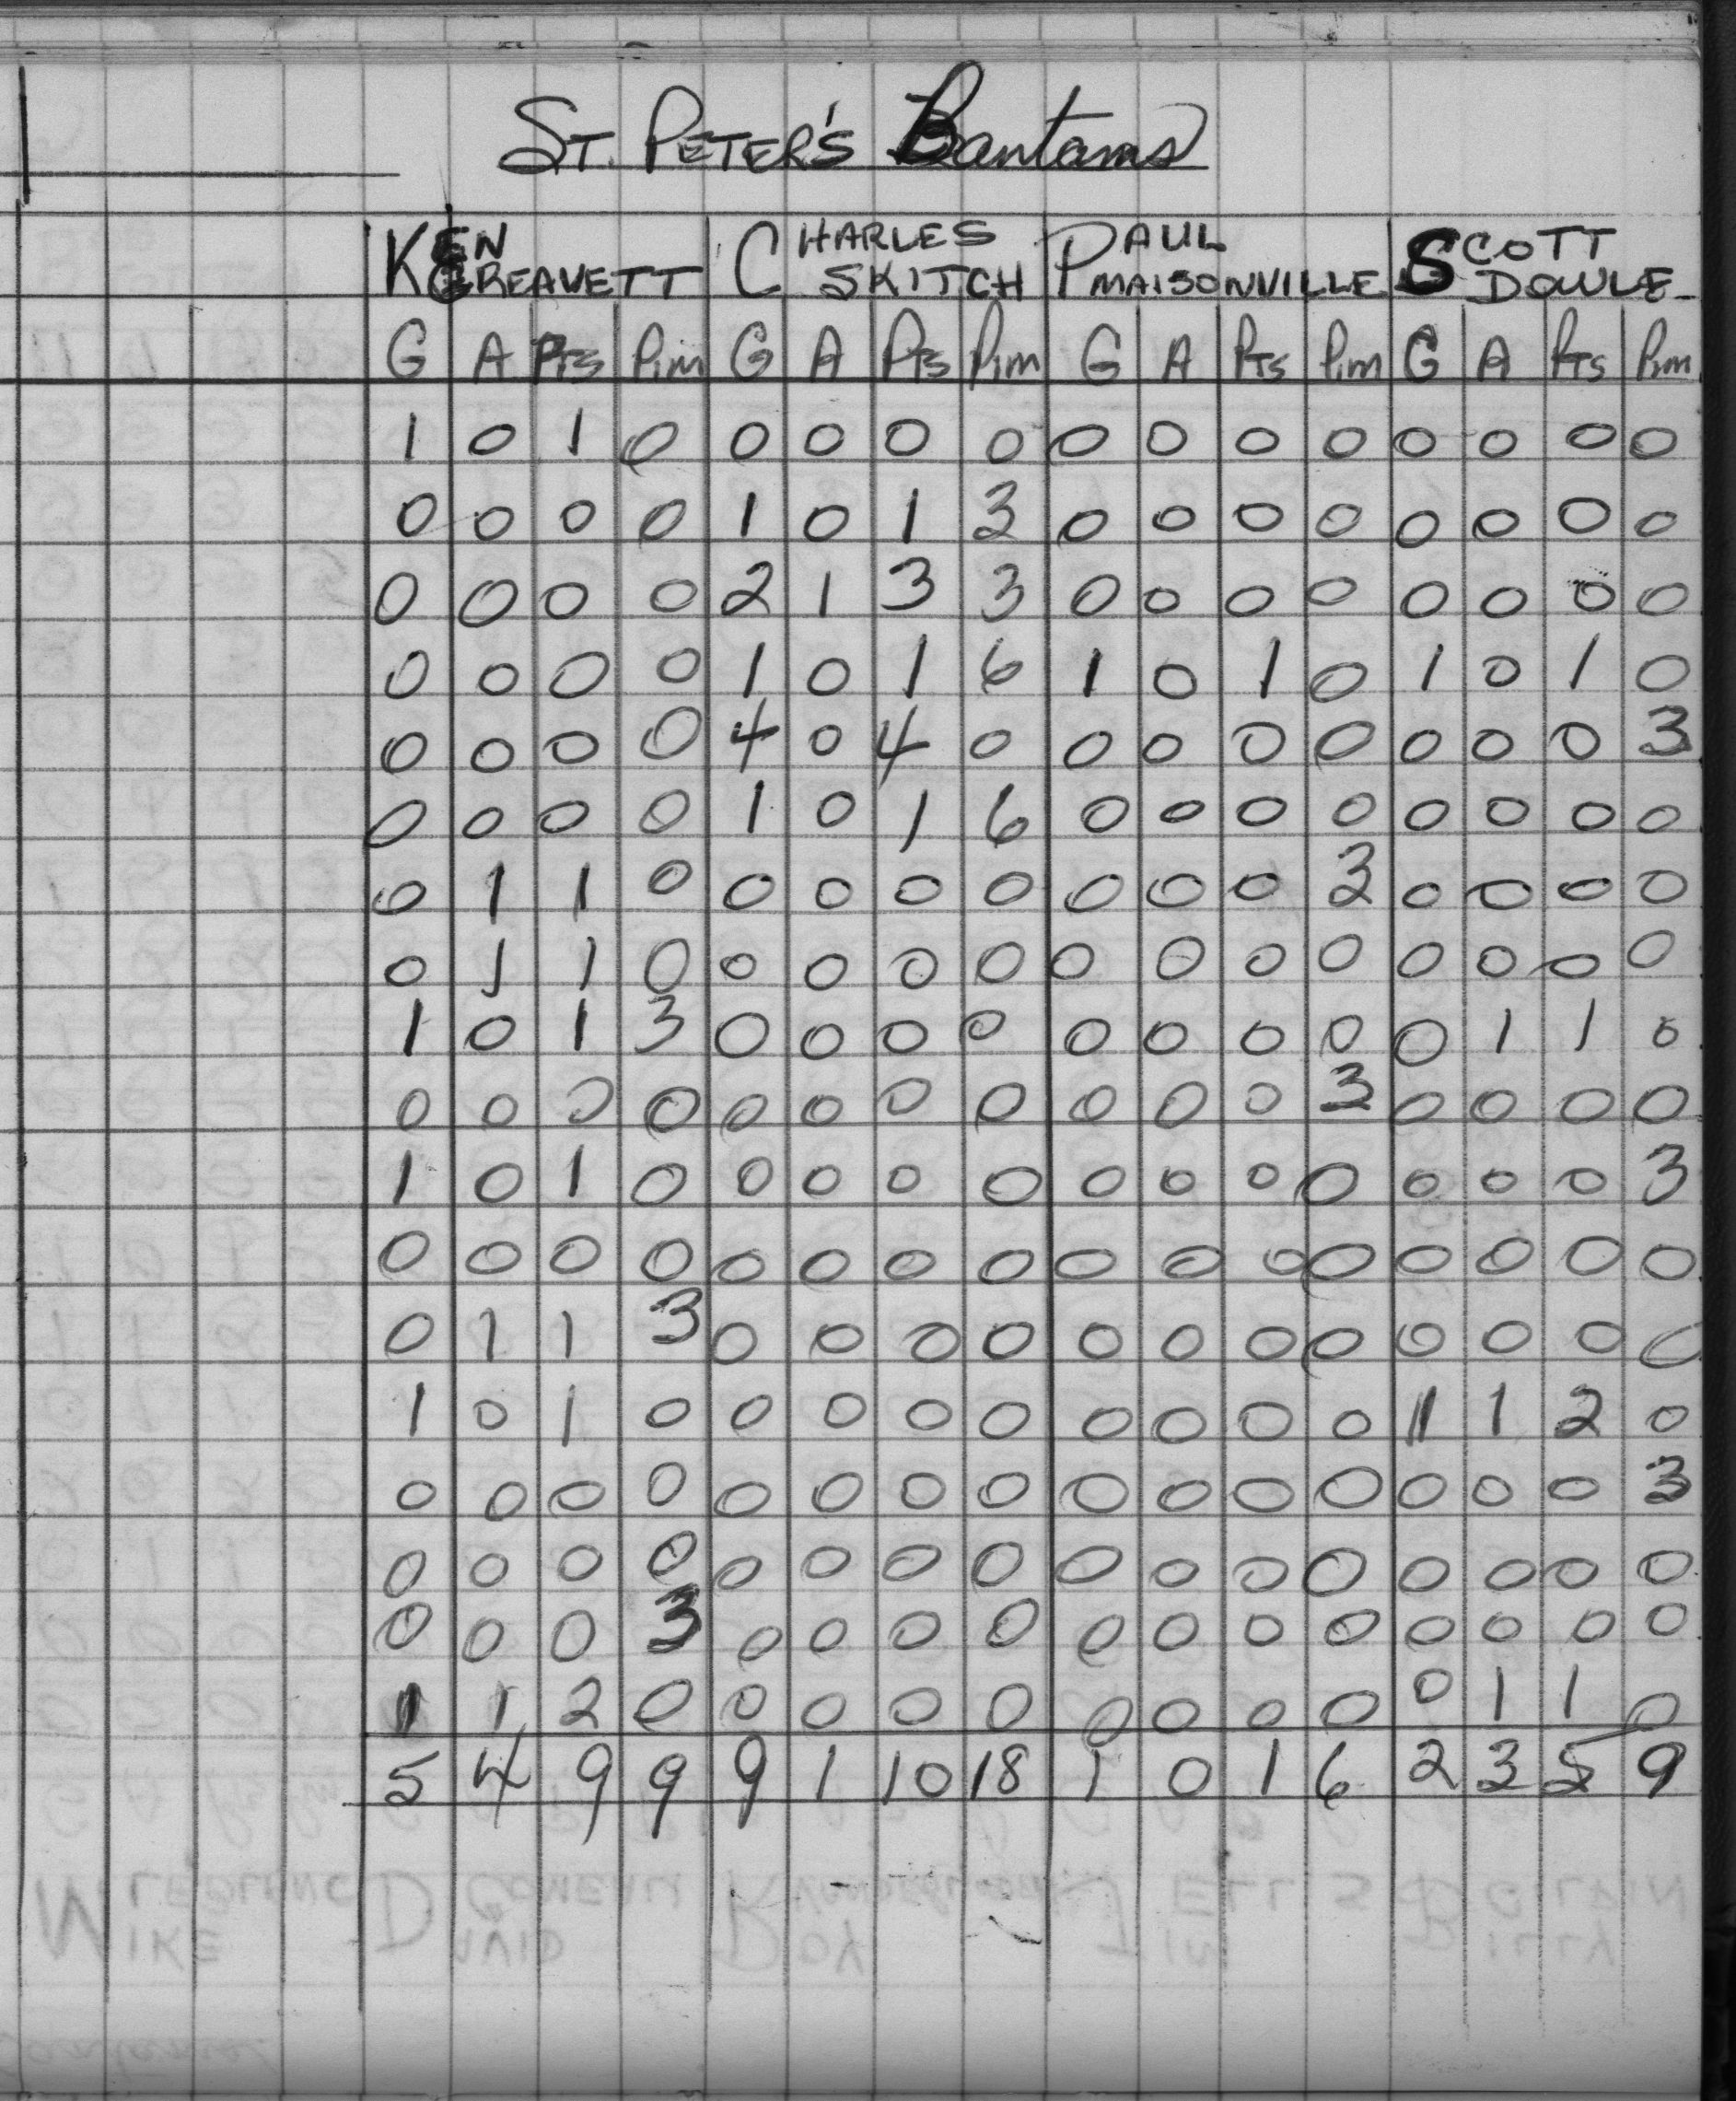 ST. PETER'S Bantams
KEN CHARLES PAUL SCOTT
GREAVETT SKITCH MAISONVILLE DOWLE
G A PTS Pim G A PTS Pim G A PTS Pim G A PTS Pim
1 0 1 0 0 0 0 0 0 0 0 0 0 0 0 0
0 0 0 0 1 0 1 3 0 0 0 0 0 0 0 0
0 0 0 0 2 1 3 3 0 0 0 0 0 0 0 0
0 0 0 0 1 0 1 6 1 0 1 0 1 0 1 0
0 0 0 0 4 0 4 0 0 0 0 0 0 0 0 3
0 0 0 0 1 0 1 6 0 0 0 0 0 0 0 0
0 1 1 0 0 0 0 0 0 0 0 3 0 0 0 0
0 1 1 0 0 0 0 0 0 0 0 0 0 0 0 0
1 0 1 3 0 0 0 0 0 0 0 0 0 1 1 0
0 0 0 0 0 0 0 0 0 0 0 3 0 0 0 0
1 0 1 0 0 0 0 0 0 0 0 0 0 0 0 3
0 0 0 0 0 0 0 0 0 0 0 0 0 0 0 0
0 1 1 3 0 0 0 0 0 0 0 0 0 0 0 0
1 0 1 0 0 0 0 0 0 0 0 0 1 1 2 0
0 0 0 0 0 0 0 0 0 0 0 0 0 0 0 3
0 0 0 0 0 0 0 0 0 0 0 0 0 0 0 0
0 0 0 3 0 0 0 0 0 0 0 0 0 0 0 0
1 1 2 0 0 0 0 0 0 0 0 0 0 1 1 0
5 4 9 9 9 1 10 18 1 0 1 6 2 3 5 9